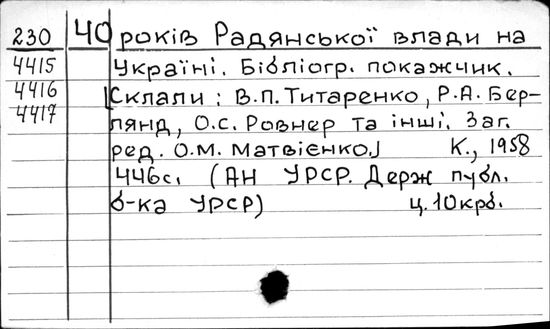 230 40 років Радянської влади на
4415 Україні. Бібліогр. покажчик.
4416 [Склали: В.П. Титаренко, Р.А. Бер-
4417 лянд, О.С. Ровнер та інші. Заг.
ред. О.М. Матвієнко] К., 1958
446с. (АН УРСР. Держ публ.
б-ка УРСР) ц. 10крб.